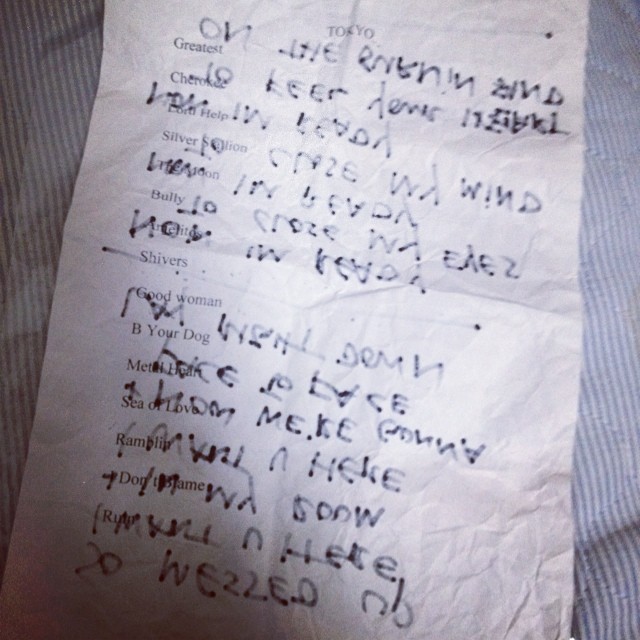 TOKYO
Greatest
Cherokee
Lord Help
Silver Stallion
Bully
Shivers
Good woman
B Your Dog
Metal Heart
Sea of Love
Ramblin
Don't Blame
ON THE
TO KEEP YOUR HEART
I'M READY
TO CLOSE MY MIND
I'M READY
TO CLOSE MY EYES
WHEN I'M READY
WENT DOWN
FACE TO FACE
I KNOW WE'RE GONNA
I WANT U HERE
IN MY ROOM
I WANT U HERE
SO MESSED UP